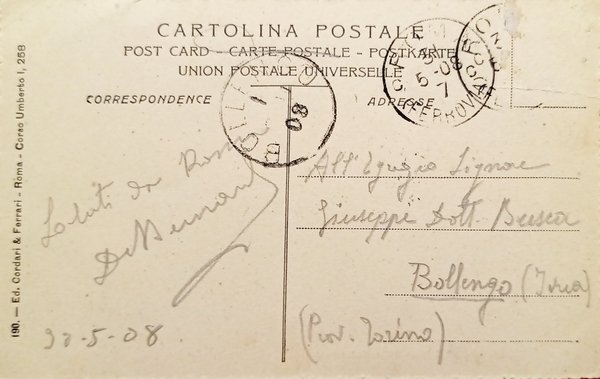 CARTOLINA POSTALE
POST CARD - CARTE POSTALE - POSTKARTE
UNION POSTALE UNIVERSELLE
CORRESPONDENCE
ADRESSE
ROMA
5-08
7
FERROVIA
1
08
Saluti da Roma
30-5-08
All'Egregio Signore
Giuseppe Dott. Busca
Bollengo (Ivrea)
(Prov. Torino)
190. — Ed. Cordari & Ferrari - Roma - Corso Umberto I, 258